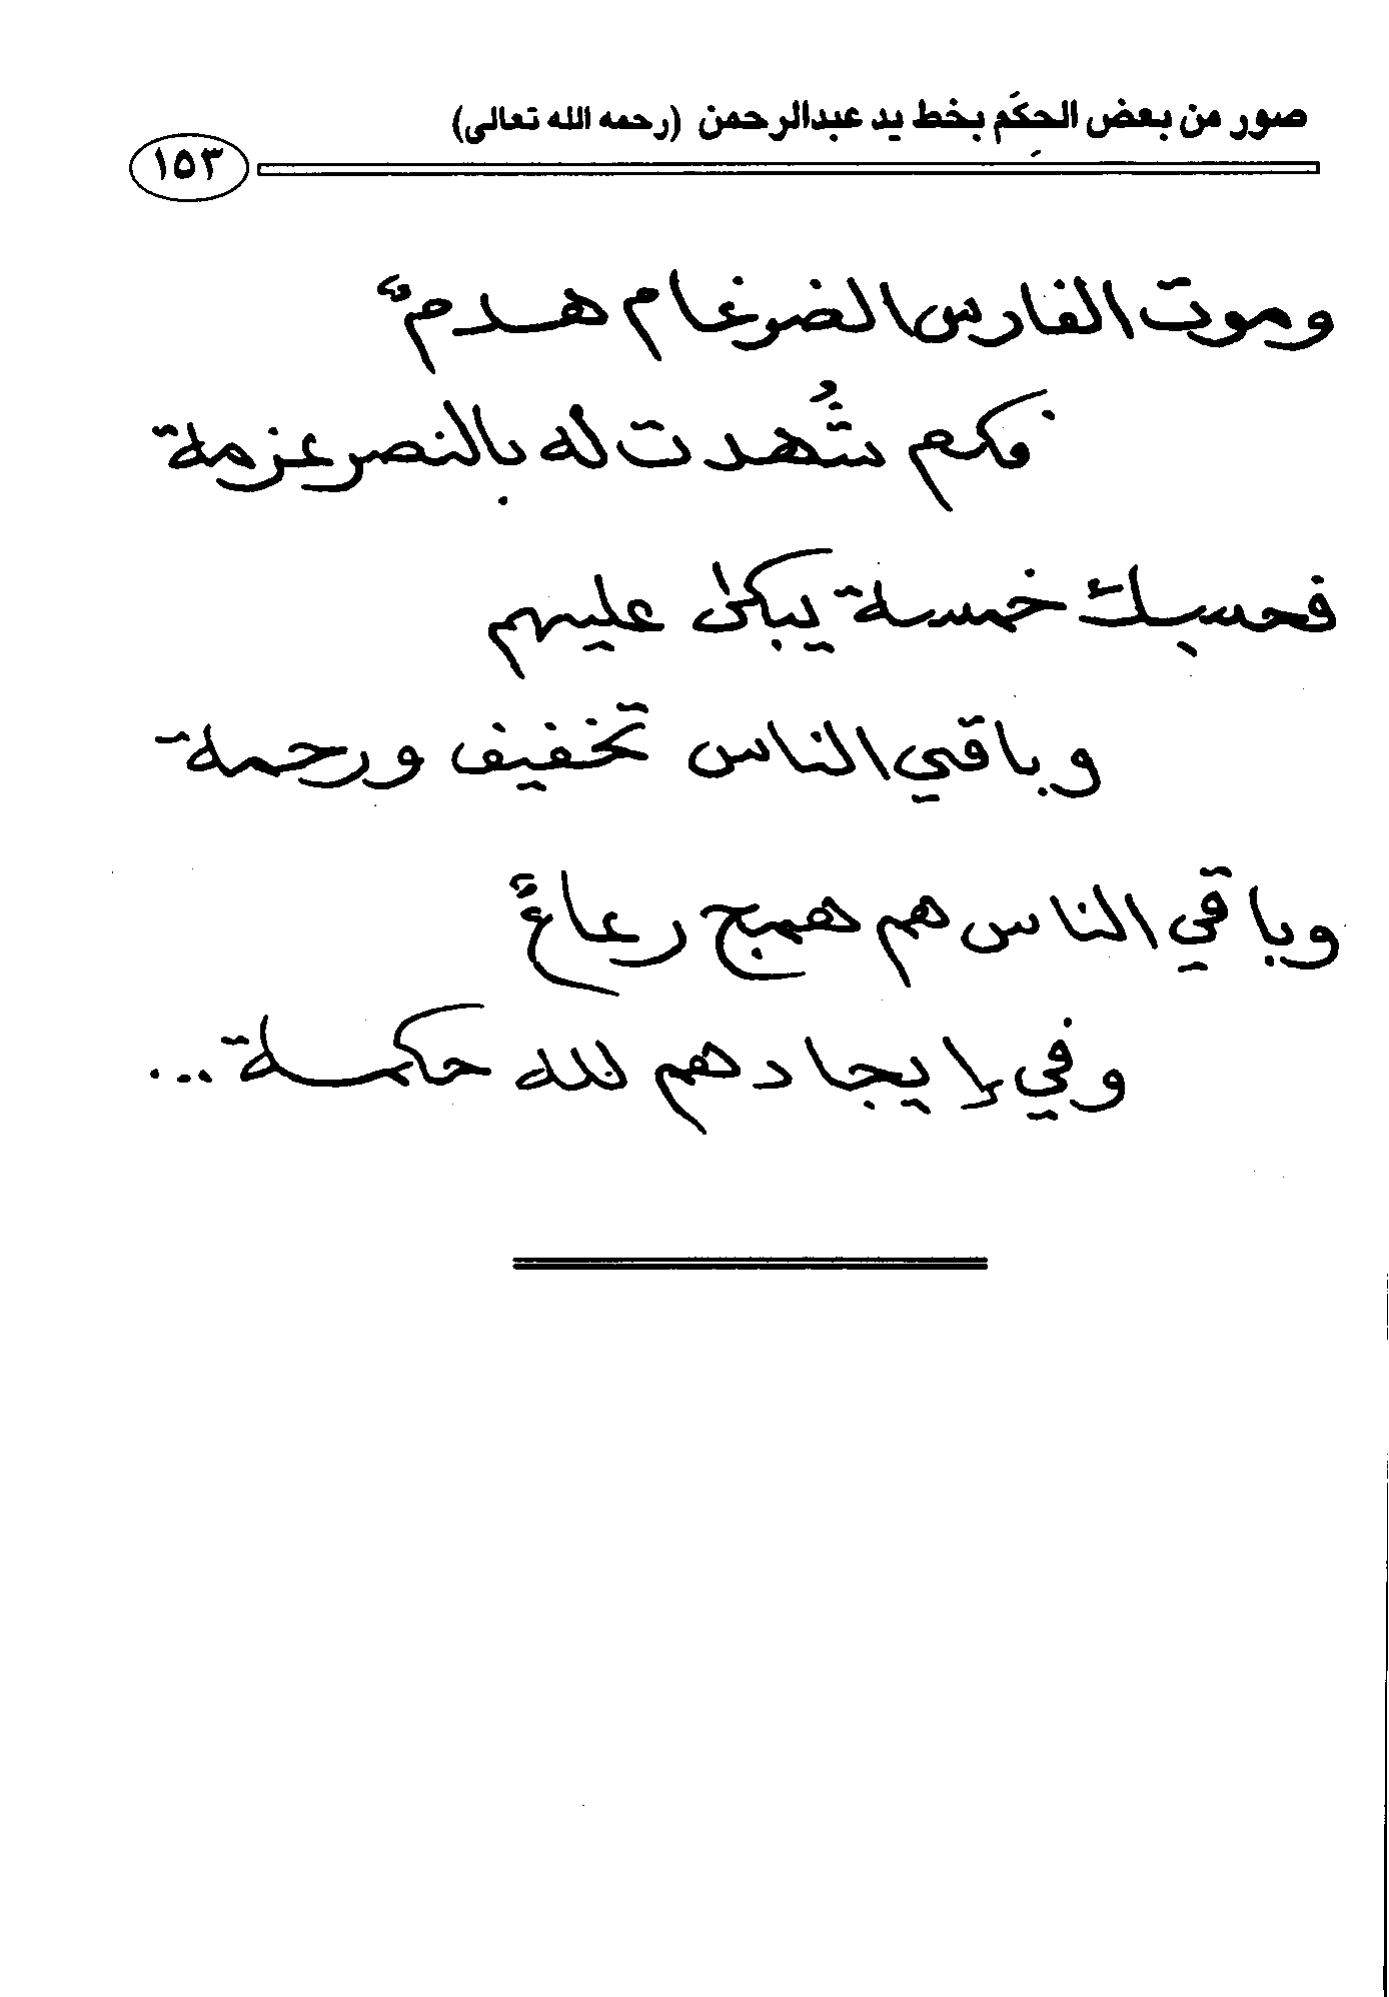 صور من بعض الحِكَم بخط يد عبدالرحمن (رحمه الله تعالى)
١٥٣
وموت الفارس الضرغام هدمٌ
فكم شُهدت له بالنصر عزمة
فحسبك خمسة يبكى عليهم
وباقي الناس تخفيف ورحمة
وباقي الناس هم همج رعاعٌ
وفي إيجادهم لله حكمة...